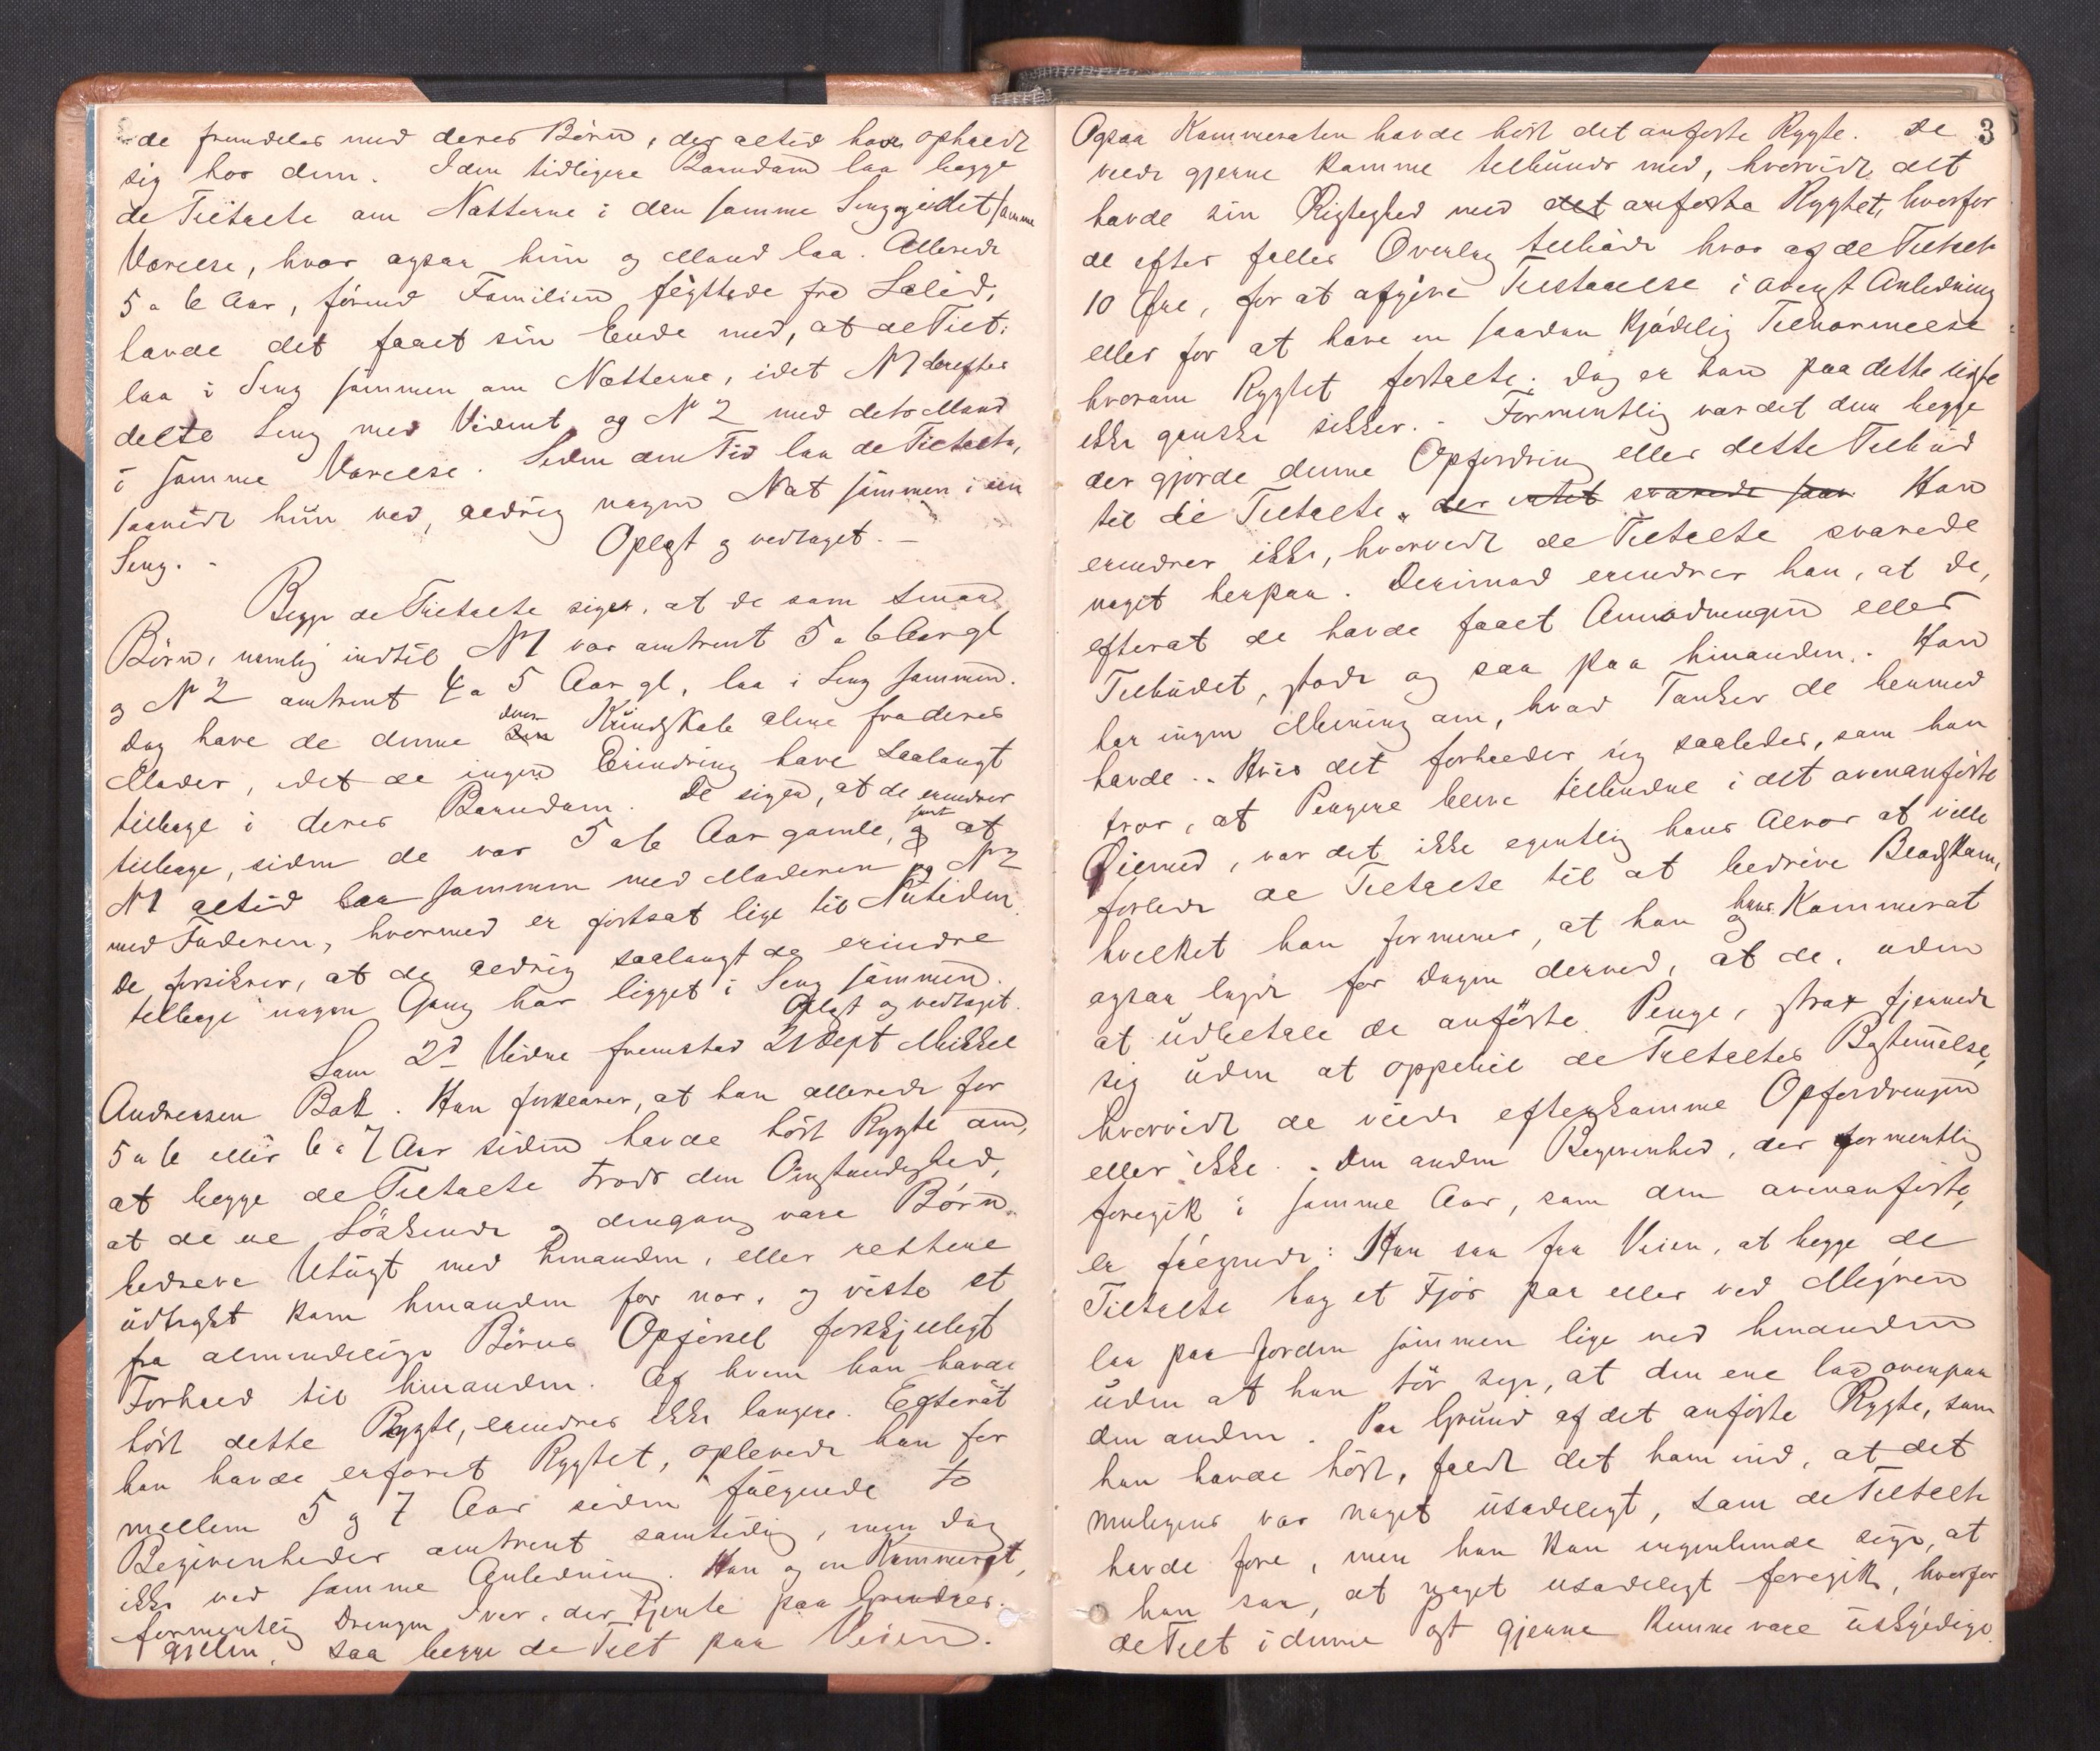 de fremdeles med deres Börn, der altid have opholdt
sig hos dem. I den tidligere Barndom laa begge
de Tiltalte om Nætterne i den samme Seng og i det samme
Værelse, hvor ogsaa hun og Mand laa. Allerede
5 a 6 Aar, förend Familien flyttede fra
havde det faaet sin Ende med, at de Tilt:
laa i Seng sammen om Nætterne, idet N 1 derefter
delte Seng med Vidnet og N 2 med dets Mand
i samme Værelse. Siden den Tid laa de Tiltalte,
saavidt hun ved, aldrig nogen Nat sammen i een
Seng. - Oplæst og vedtaget. -
Begge de Tiltalte siger, at de som smaa
Börn, nemlig indtil N 1 var omtrent 5 a 6 Aar gl
og N 2 omtrent 4 a 5 Aar gl, laa i Seng sammen.
Dog have de denne deres Kundskab alene fra deres
Moder, idet de ingen Erindring have saalangt
tilbage i deres Barndom. De siger, at de erindrer
tilbage, siden de var 5 a 6 Aar gamle, samt at
N 1 altid laa sammen med Moderen og N 2
med Faderen, hvormed er fortsat lige til Nutiden.
De forsikrer, at de aldrig saalangt de erindre
tilbage nogen Gang har ligget i Seng sammen.
Oplæst og vedtaget.
Som 2d Vidne fremstod 21 Sept Mikkel
Andreasen Bak. Han forklarer, at han allerede for
5 a 6 eller 6 a 7 Aar siden havde hört Rygte om,
at begge de Tiltalte trods den Omstændighed,
at de ere Söskende og dengang vare Börn.
bedreve Utugt med hinanden, eller rettere
udtrykt kom hinanden for nær, og viste et
fra almindelige Börns Opförsel forskjelligt
Forhold til hinanden. Af hvem han havde
hört dette Rygte, erindrer ikke længere. Efterat
han havde erfaret Rygtet, oplevede han for
mellem 5 og 7 Aar siden fölgende to
Begivenheder omtrent samtidig, men dog
ikke ved samme Anledning. Han og en Kammerat,
formentlig Drengen Iver, der tjente paa
gjelen, saa begge de Tilt paa Veien.
3
Ogsaa Kammeraten havde hört det anförte Rygte. De
vilde gjerne komme tilbunds med, hvorvidt det
havde sin Rigtighed med det anförte Rygtet, hvorfor
de efter fælles Overlæg tilböde hver af de Tiltalte
10 Öre, for at afgive Tilstaaelse i Anledning
eller for at have en saadan kjödelig Tilnærmelse
hvorom Rygtet fortalte. Dog er han paa dette sidste
ikke ganske sikker. - Formentlig var det dem begge
der gjorde denne Opfordring eller dette Tilbud
til de Tiltalte. der intet svarede Han
erindrer ikke, hvorvidt de Tiltalte svarede
noget herpaa. Derimod erindrer han, at de,
efterat de havde faaet Anmodningen eller
Tilbudet, stode og saa paa hinanden. Han
har ingen Mening om, hvad Tanker de hermed
havde. . Hvis det forholder sig saaledes, som han
tror, at Pengene bleve tilbudne i det ovenanförte
Öiemed, var det ikke egentlig hans Alvor at ville
forlede de Tiltalte til at bedrive Blodskam,
hvilket han formener, at han og hans Kammerat
ogsaa lagde for Dagen derved, at de, uden
at udbetale de anförte Penge, strax fjernede
sig uden at oppebie de Tiltaltes Bestemmelse,
hvorvidt de vilde efterkomme Opfordringen
eller ikke. . Den anden Begivenhed, der formentlig
foregik i samme Aar, som den ovenanförte,
er fölgende: Han saa fra Veien, at begge de
Tiltalte bag et Fjös paa eller ved
laa paa Jorden sammen lige ved hinanden
uden at han tör sige, at den ene laa ovenpaa
den anden. Paa Grund af det anförte Rygte, som
han havde hört, faldt det ham ind, at det
muligens var noget usædeligt, som de Tiltalte
havde fore, men han kan ingenlunde sige, at
han saa, at noget usædeligt foregik, hvorfor
de Tilt i denne Post gjerne kunne være uskyldige.